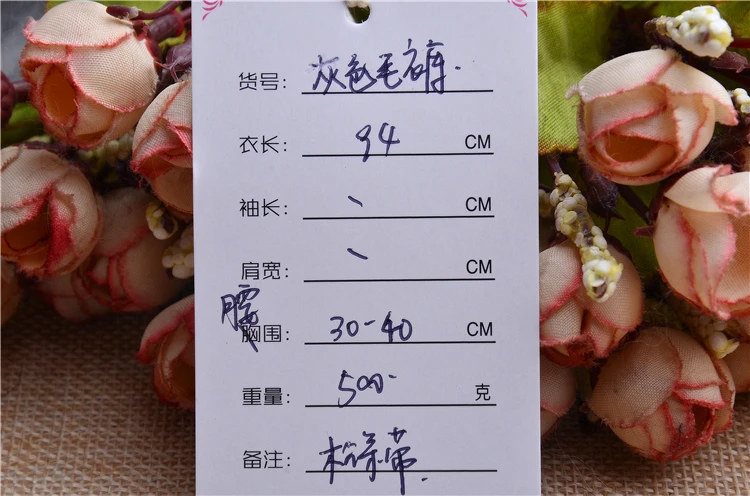 货号: 灰色毛裤.
衣长: 94 CM
袖长: 、 CM
肩宽: 、 CM
腰
胸围: 30-40 CM
重量: 500- 克
备注: 松紧带.